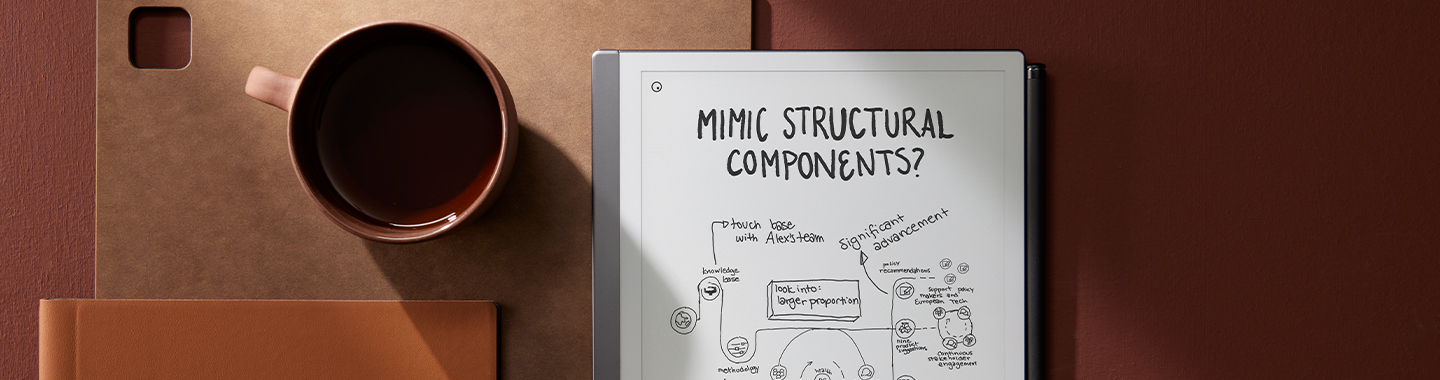 MIMIC STRUCTURAL
COMPONENTS?
touch base
with Alex's team
significant
advancement
policy
recommendations
knowledge
base
look into:
larger proportion
support policy
makers and
European Tech
nine
product
suggestions
continuous
stakeholder
engagement
methodology
health